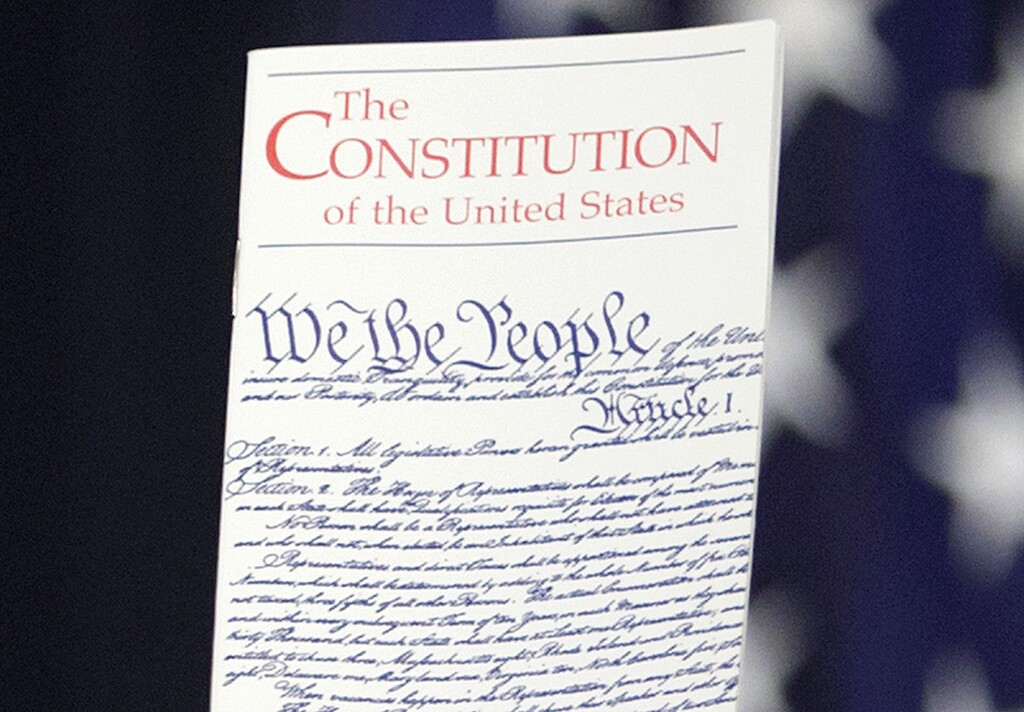 The
CONSTITUTION
of the United States
We the People of the Uni
insure domestic Tranquility, provide for the common defence, promo
and our Posterity, do ordain and establish this Constitution for the U
Article. I.
Section. 1. All legislative Powers herein granted shall be vested in
of Representatives.
Section. 2. The House of Representatives shall be composed of Mem
in each State shall have Qualifications requisite for Electors of the most numerou
No Person shall be a Representative who shall not have attained to
and who shall not, when elected, be an Inhabitant of that State in which he
Representatives and direct Taxes shall be apportioned among the several
Numbers, which shall be determined by adding to the whole Number of free
not taxed, three fifths of all other Persons. The actual Enumeration shall be
and within every subsequent Term of ten Years, in such Manner as they shall
thirty Thousand, but each State shall have at Least one Representative; and
entitled to chuse three, Massachusetts eight, Rhode Island and Providence
eight, Delaware one, Maryland six, Virginia ten, North Carolina five,
When vacancies happen in the Representation from any State, the
The House of